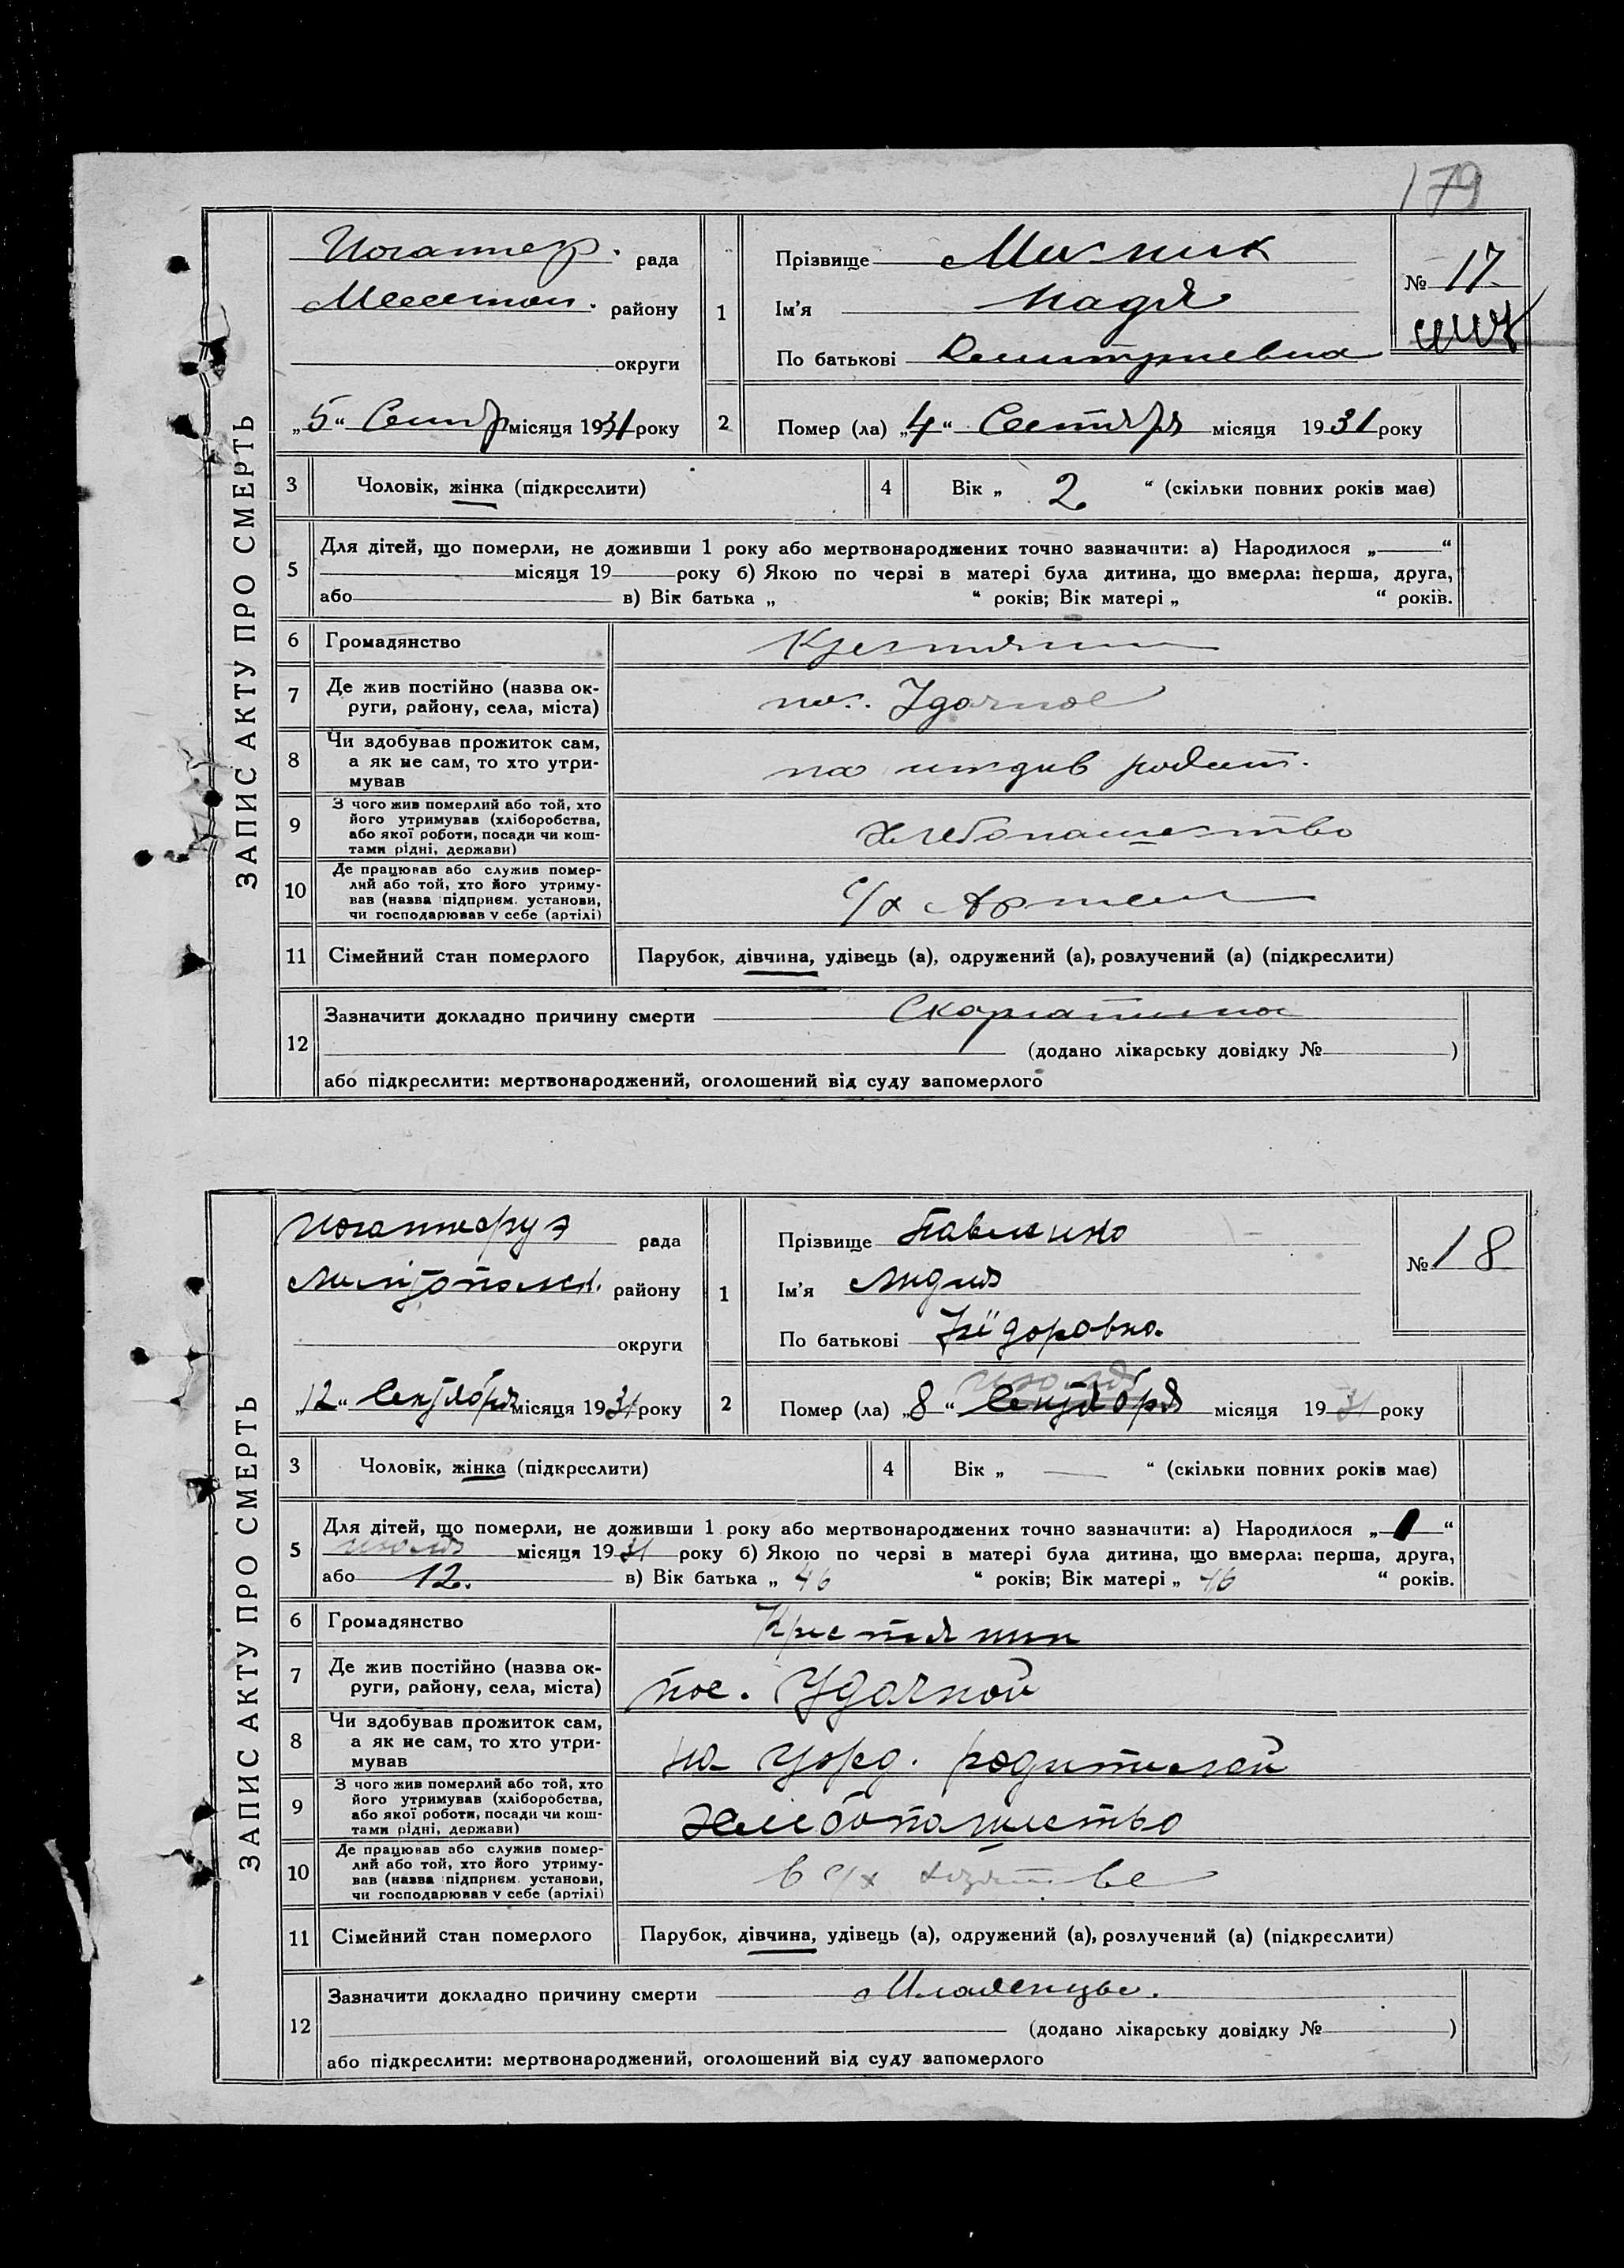 179
ЗАПИС АКТУ ПРО СМЕРТЬ
рада
района
округи
„5“ Сентяр місяця 1931 року
1
Прізвище Мизник
Ім'я Надя
По батькові Дмитриевна
№ 17
2
Помер (ла) „4“ Сентября місяця 1931 року
3 Чоловік, жінка (підкреслити)
4 Вік „ 2 “ (скільки повних років має)
5 Для дітей, що померли, не доживши 1 року або мертвонароджених точно зазначити: а) Народилося „ “
місяця 19 року б) Якою по черзі в матері була дитина, що вмерла: перша, друга,
або в) Вік батька „ “ років; Вік матері „ “ років.
6 Громадянство
Крестянин
7 Де жив постійно (назва ок-
руги, району, села, міста)
пос. Удачное
8 Чи здобував прожиток сам,
а як не сам, то хто утри-
мував
на иждив родит.
9 З чого жив померлий або той, хто
його утримував (хліборобства,
або якої роботи, посади чи кош-
тами рідні, держави)
Хлебопашество
10 Де працював або служив помер-
лий або той, хто його утриму-
вав (назва підприєм. установи,
чи господарював у себе (артілі)
с/х Артели
11 Сімейний стан померлого
Парубок, дівчина, удівець (а), одружений (а), розлучений (а) (підкреслити)
12 Зазначити докладно причину смерти Скарлатина
(додано лікарську довідку № )
або підкреслити: мертвонароджений, оголошений від суду запомерлого
ЗАПИС АКТУ ПРО СМЕРТЬ
рада
Мелітопольск. району
округи
„12“ Сентября місяця 1931 року
1
Прізвище Павленко
Ім'я Лидия
По батькові Фёдоровна
№ 18
2
Помер (ла) „8“ Сентября июля місяця 1931 року
3 Чоловік, жінка (підкреслити)
4 Вік „ — “ (скільки повних років має)
5 Для дітей, що померли, не доживши 1 року або мертвонароджених точно зазначити: а) Народилося „1“
июля місяця 1931 року б) Якою по черзі в матері була дитина, що вмерла: перша, друга,
або 12. в) Вік батька „ 46 “ років; Вік матері „ 46 “ років.
6 Громадянство
Крестянин
7 Де жив постійно (назва ок-
руги, району, села, міста)
пос. Удачной
8 Чи здобував прожиток сам,
а як не сам, то хто утри-
мував
на родителей
9 З чого жив померлий або той, хто
його утримував (хліборобства,
або якої роботи, посади чи кош-
тами рідні, держави)
Хлебопашество
10 Де працював або служив помер-
лий або той, хто його утриму-
вав (назва підприєм. установи,
чи господарював у себе (артілі)
в с/х хозяйстве
11 Сімейний стан померлого
Парубок, дівчина, удівець (а), одружений (а), розлучений (а) (підкреслити)
12 Зазначити докладно причину смерти Младенцье.
(додано лікарську довідку № )
або підкреслити: мертвонароджений, оголошений від суду запомерлого